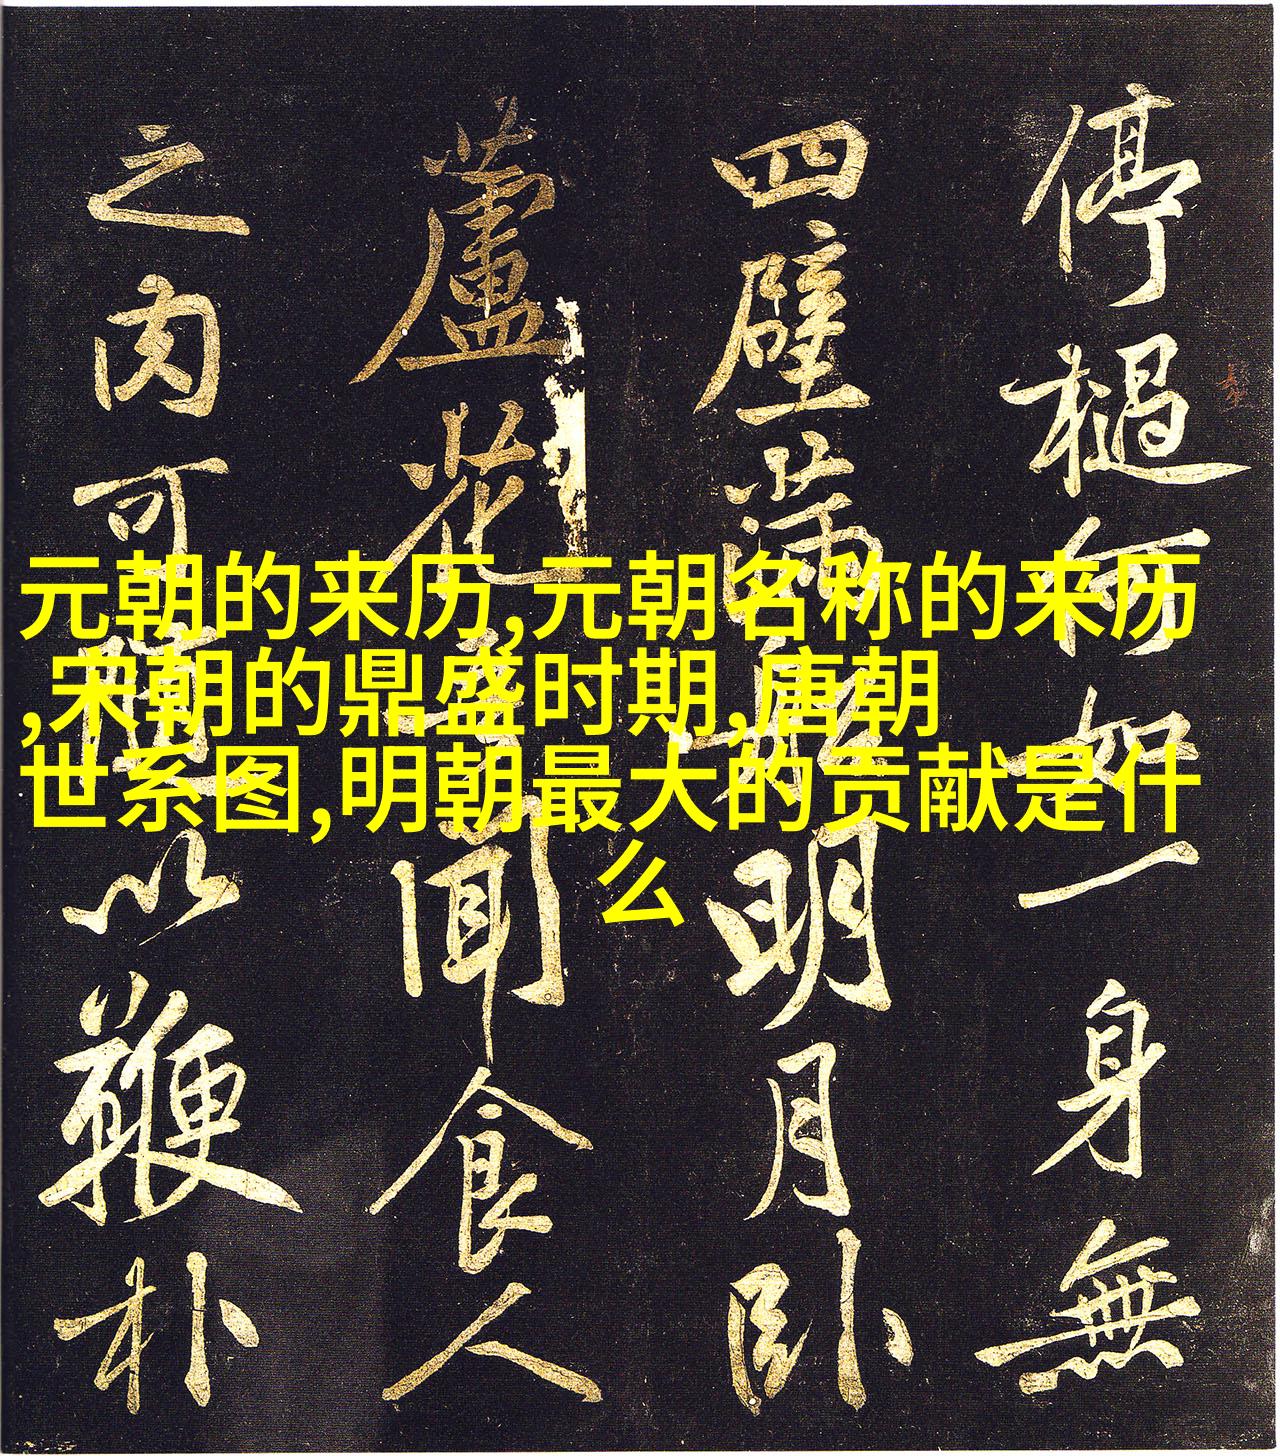 停檛何如一身無
四壁滿明月卧
蘆花聞食人
之肉可以鞭朴
元朝的来历,元朝名称的来历
,宋朝的鼎盛时期,唐朝
世系图,明朝最大的贡献是什
么